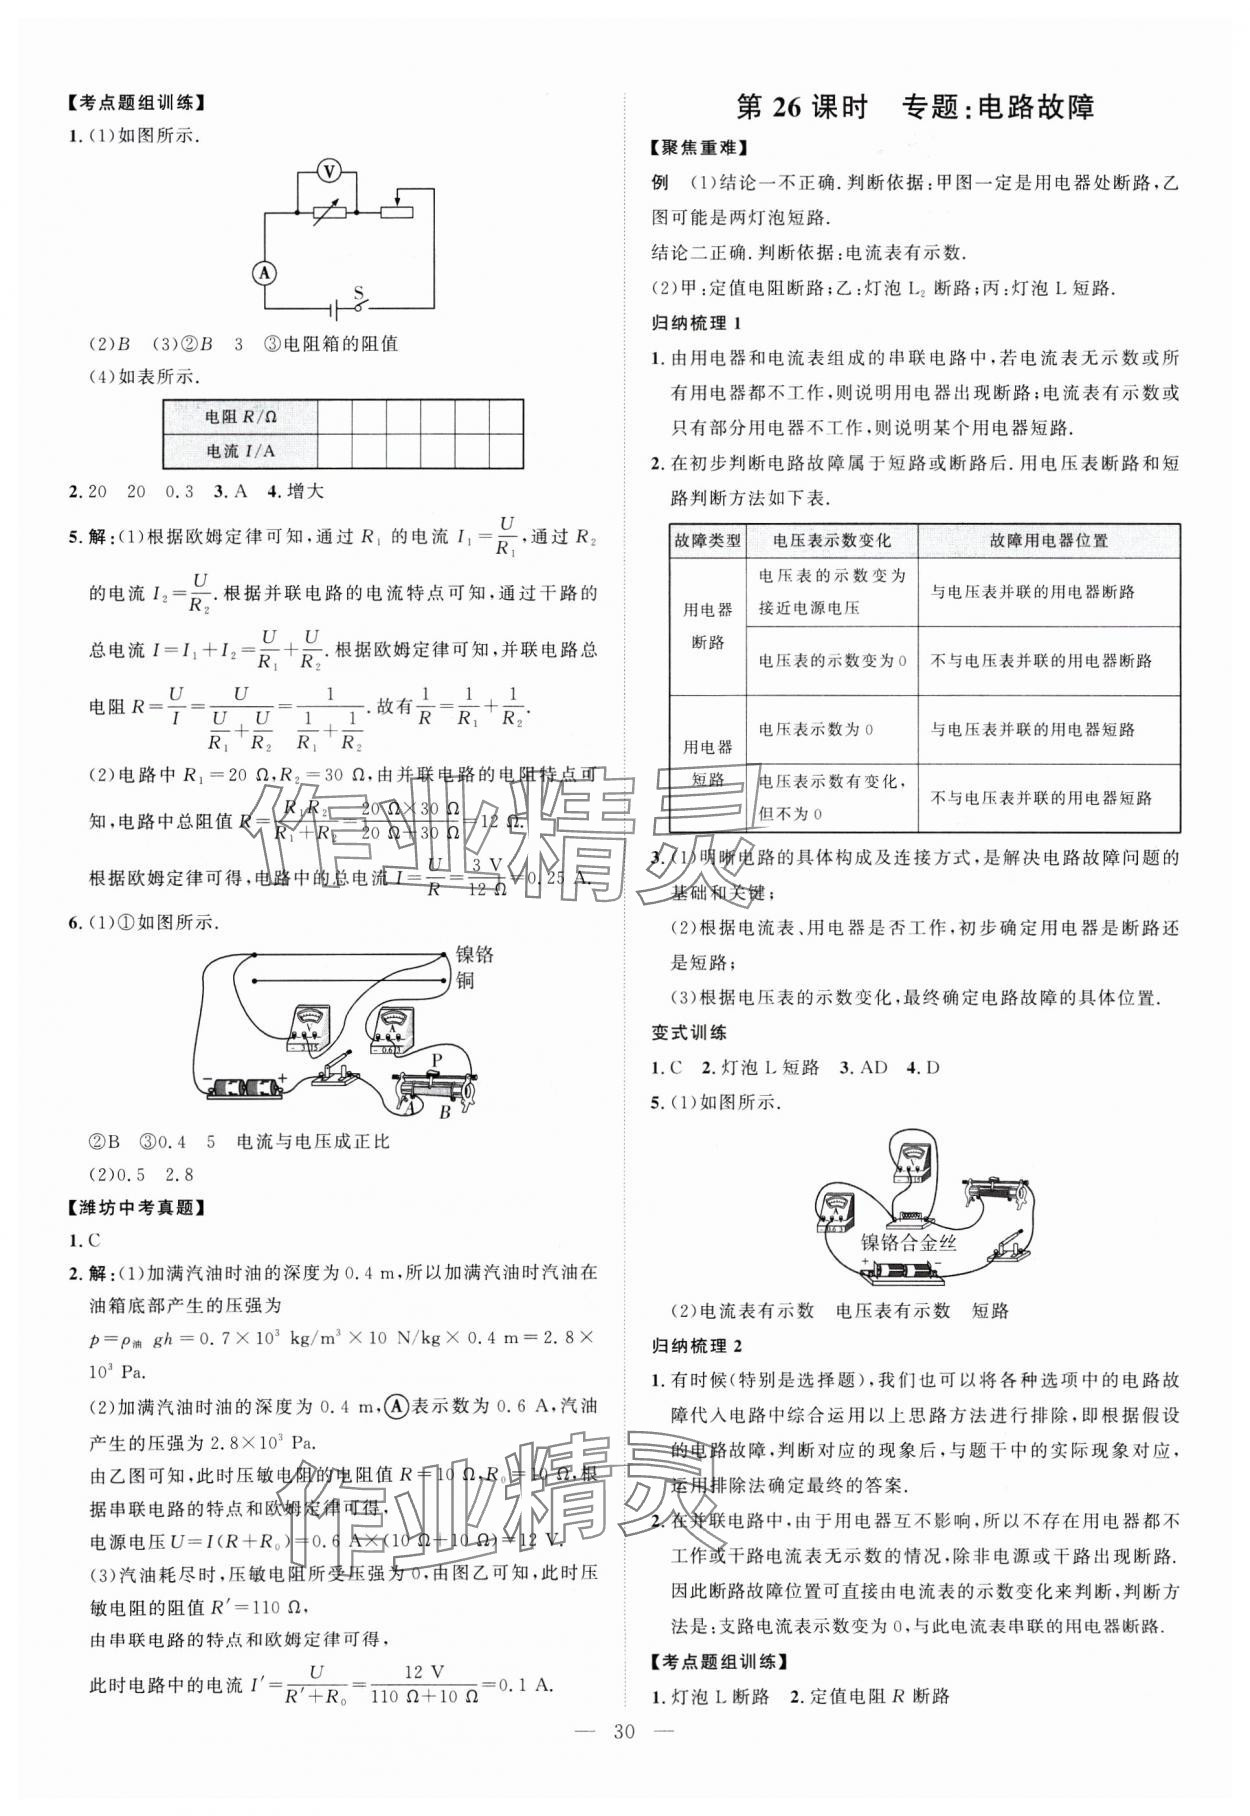 【考点题组训练】
1.(1)如图所示.
V
A
S
(2)B (3)②B 3 ③电阻箱的阻值
(4)如表所示.
电阻 R/Ω
电流 I/A
2.20 20 0.3 3.A 4.增大
5.解:(1)根据欧姆定律可知,通过 R₁ 的电流 I₁=U/R₁,通过 R₂
的电流 I₂=U/R₂.根据并联电路的电流特点可知,通过干路的
总电流 I=I₁+I₂=U/R₁+U/R₂.根据欧姆定律可知,并联电路总
电阻 R=U/I=U/(U/R₁+U/R₂)=1/(1/R₁+1/R₂).故有1/R=1/R₁+1/R₂.
(2)电路中 R₁=20 Ω,R₂=30 Ω,由并联电路的电阻特点可
知,电路中总阻值 R=R₁R₂/(R₁+R₂)=(20 Ω×30 Ω)/(20 Ω+30 Ω)=12 Ω.
根据欧姆定律可得,电路中的总电流 I=U/R=3 V/12 Ω=0.25 A.
6.(1)①如图所示.
镍铬
铜
V
A
- 3 15
- 0.6 3
P
- +
A B
②B ③0.4 5 电流与电压成正比
(2)0.5 2.8
【潍坊中考真题】
1.C
2.解:(1)加满汽油时油的深度为 0.4 m,所以加满汽油时汽油在
油箱底部产生的压强为
p=ρ油 gh=0.7×10³ kg/m³×10 N/kg×0.4 m=2.8×
10³ Pa.
(2)加满汽油时油的深度为 0.4 m,Ⓐ表示数为 0.6 A,汽油
产生的压强为 2.8×10³ Pa.
由乙图可知,此时压敏电阻的电阻值 R=10 Ω,R₀=10 Ω,根
据串联电路的特点和欧姆定律可得,
电源电压 U=I(R+R₀)=0.6 A×(10 Ω+10 Ω)=12 V.
(3)汽油耗尽时,压敏电阻所受压强为 0,由图乙可知,此时压
敏电阻的阻值 R′=110 Ω,
由串联电路的特点和欧姆定律可得,
此时电路中的电流 I′=U/(R′+R₀)=12 V/(110 Ω+10 Ω)=0.1 A.
第 26 课时 专题:电路故障
【聚焦重难】
例 (1)结论一不正确.判断依据:甲图一定是用电器处断路,乙
图可能是两灯泡短路.
结论二正确.判断依据:电流表有示数.
(2)甲:定值电阻断路;乙:灯泡 L₂ 断路;丙:灯泡 L 短路.
归纳梳理 1
1.由用电器和电流表组成的串联电路中,若电流表无示数或所
有用电器都不工作,则说明用电器出现断路;电流表有示数或
只有部分用电器不工作,则说明某个用电器短路.
2.在初步判断电路故障属于短路或断路后.用电压表断路和短
路判断方法如下表.
故障类型 电压表示数变化 故障用电器位置
用电器断路 电压表的示数变为接近电源电压 与电压表并联的用电器断路
电压表的示数变为 0 不与电压表并联的用电器断路
用电器短路 电压表示数为 0 与电压表并联的用电器短路
电压表示数有变化,但不为 0 不与电压表并联的用电器短路
3.(1)明晰电路的具体构成及连接方式,是解决电路故障问题的
基础和关键;
(2)根据电流表、用电器是否工作,初步确定用电器是断路还
是短路;
(3)根据电压表的示数变化,最终确定电路故障的具体位置.
变式训练
1.C 2.灯泡 L 短路 3.AD 4.D
5.(1)如图所示.
A
镍铬合金丝
+ -
(2)电流表有示数 电压表有示数 短路
归纳梳理 2
1.有时候(特别是选择题),我们也可以将各种选项中的电路故
障代入电路中综合运用以上思路方法进行排除,即根据假设
的电路故障,判断对应的现象后,与题干中的实际现象对应,
运用排除法确定最终的答案.
2.在并联电路中,由于用电器互不影响,所以不存在用电器都不
工作或干路电流表无示数的情况,除非电源或干路出现断路.
因此断路故障位置可直接由电流表的示数变化来判断,判断方
法是:支路电流表示数变为 0,与此电流表串联的用电器断路.
【考点题组训练】
1.灯泡 L 断路 2.定值电阻 R 断路
— 30 —
作业精灵
作业精灵